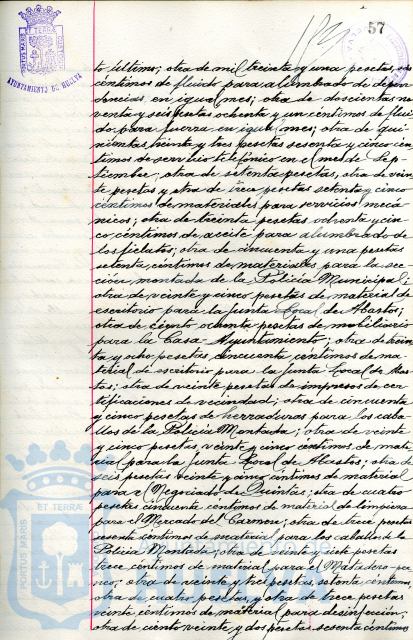 57
AYUNTAMIENTO DE HUELVA
to último; otra de mil treinta y una pesetas, seis
céntimos de fluido para alumbrado de depen-
dencias, en igual mes; otra de doscientas no-
venta y seis pesetas ochenta y un céntimos de flui-
do para fuerza en igual mes; otra de qui-
nientas treinta y tres pesetas sesenta y cinco cén-
timos de servicio telefónico en el mes de Sep-
tiembre; otra de setenta pesetas, otra de vein-
te pesetas y otra de tres pesetas setenta y cinco
céntimos de materiales para servicios mecá-
nicos; otra de treinta pesetas ochenta y cin-
co céntimos de aceite para alumbrado de
los fielatos; otra de cincuenta y una pesetas
setenta céntimos de materiales para la sec-
ción montada de la Policía Municipal;
otra de veinte y cinco pesetas de material de
escritorio para la Junta Local de Abastos;
otra de ciento ochenta pesetas de mobiliario
para la Casa-Ayuntamiento; otra de trein-
ta y ocho pesetas cincuenta céntimos de ma-
terial de escritorio para la Junta Local de Abas-
tos; otra de veinte pesetas de impresos de cer-
tificaciones de vecindad; otra de cincuenta
y cinco pesetas de herraduras para los caba-
llos de la Policía Montada; otra de veinte
y cinco pesetas, veinte y cinco céntimos de mate-
rial para la Junta Local de Abastos; otra de
seis pesetas veinte y cinco céntimos de material
para el Negociado de Quintas; otra de cuatro
pesetas cincuenta céntimos de material de limpieza
para el Mercado del Carmen; otra de trece pesetas
sesenta céntimos de material para los caballos de la
Policía Montada; otra de siete pesetas
trece céntimos de material para el Matadero pú-
blico; otra de veinte y tres pesetas, setenta céntimos,
otra de cuatro pesetas, y otra de trece pesetas
veinte céntimos de material para desinfección;
otra de ciento veinte y dos pesetas sesenta céntimos
PORTUS MARIS
ET TERRÆ